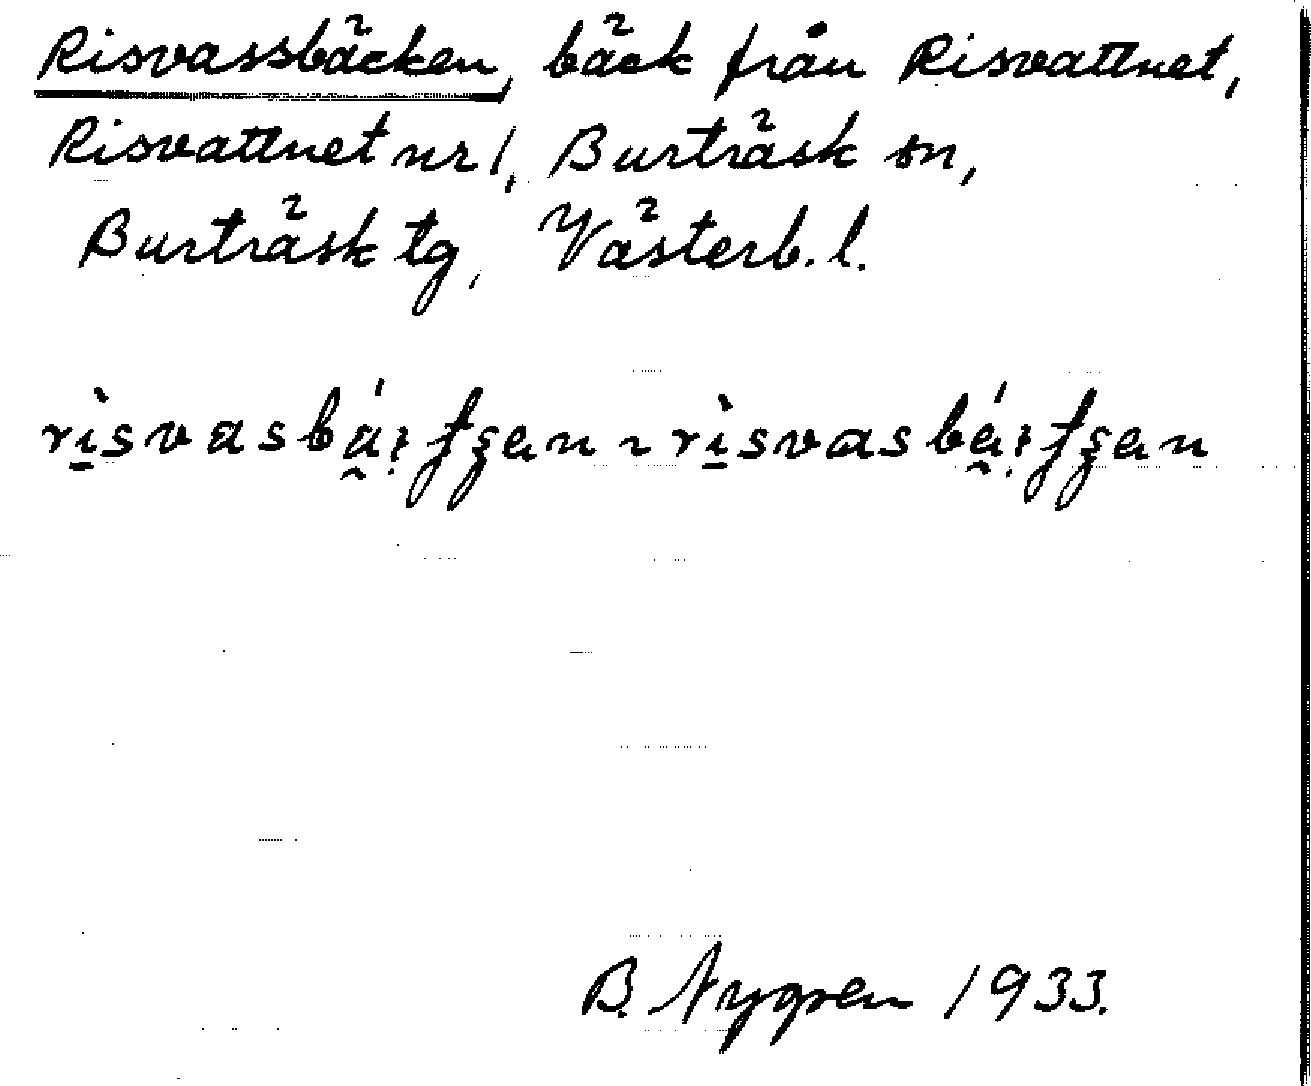 Risvassbäcken, bäck från Risvattnet,
Risvattnet nr 1, Burträsk sn,
Burträsk tg, Västerb. l.
B. Nygren 1933.